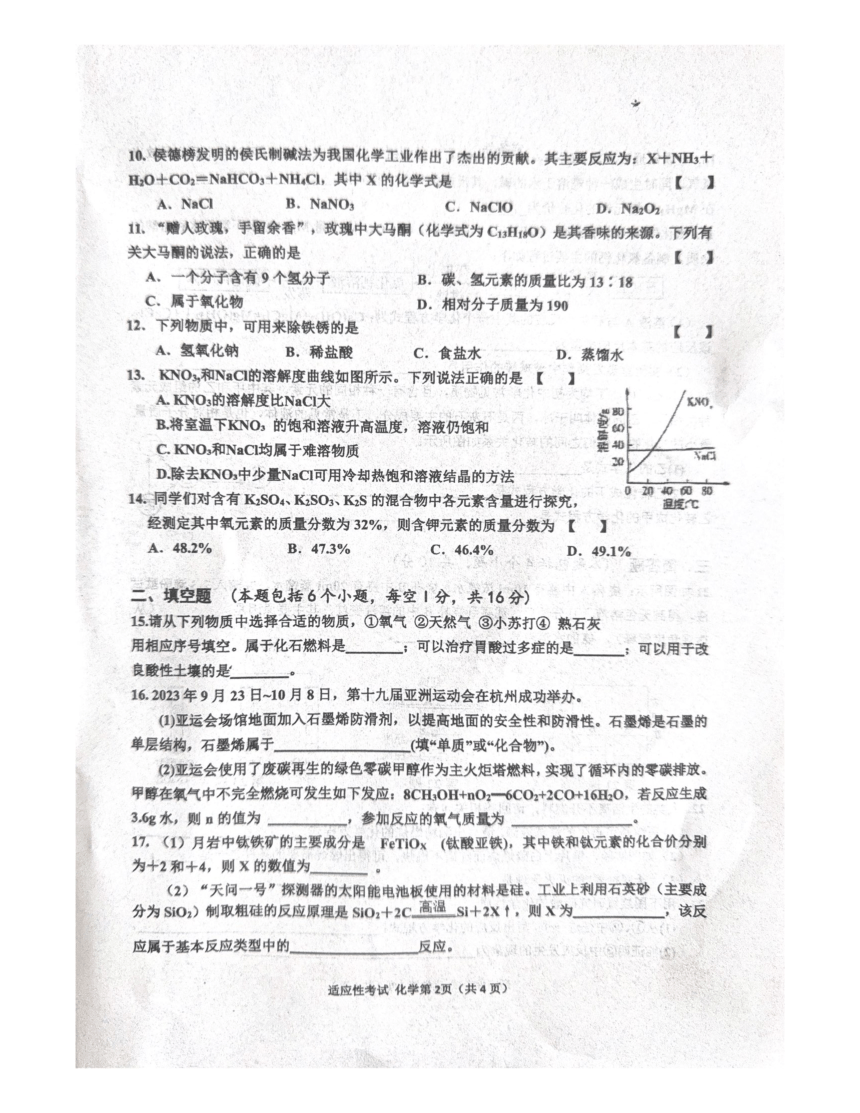 10. 侯德榜发明的侯氏制碱法为我国化学工业作出了杰出的贡献。其主要反应为：X＋NH₃＋
H₂O＋CO₂＝NaHCO₃＋NH₄Cl，其中 X 的化学式是 【 】
A．NaCl B．NaNO₃ C．NaClO D．Na₂O₂
11.“赠人玫瑰，手留余香”，玫瑰中大马酮（化学式为 C₁₃H₁₈O）是其香味的来源。下列有
关大马酮的说法，正确的是 【 】
A．一个分子含有 9 个氢分子 B．碳、氢元素的质量比为 13∶18
C．属于氧化物 D．相对分子质量为 190
12．下列物质中，可用来除铁锈的是 【 】
A．氢氧化钠 B．稀盐酸 C．食盐水 D．蒸馏水
13． KNO₃,和NaCl的溶解度曲线如图所示。下列说法正确的是 【 】
A. KNO₃的溶解度比NaCl大
B.将室温下KNO₃ 的饱和溶液升高温度，溶液仍饱和
C. KNO₃和NaCl均属于难溶物质
D.除去KNO₃中少量NaCl可用冷却热饱和溶液结晶的方法
溶解度/g
80
60
40
20
KNO₃
NaCl
0 20 40 60 80
温度/℃
14．同学们对含有 K₂SO₄、K₂SO₃、K₂S 的混合物中各元素含量进行探究，
经测定其中氧元素的质量分数为 32%，则含钾元素的质量分数为 【 】
A．48.2% B．47.3% C．46.4% D．49.1%
二、填空题 （本题包括 6 个小题，每空 1 分，共 16 分）
15.请从下列物质中选择合适的物质，①氧气 ②天然气 ③小苏打④ 熟石灰
用相应序号填空。属于化石燃料是______；可以治疗胃酸过多症的是______；可以用于改
良酸性土壤的是______。
16. 2023 年 9 月 23 日~10 月 8 日，第十九届亚洲运动会在杭州成功举办。
(1)亚运会场馆地面加入石墨烯防滑剂，以提高地面的安全性和防滑性。石墨烯是石墨的
单层结构，石墨烯属于____________(填“单质”或“化合物”)。
(2)亚运会使用了废碳再生的绿色零碳甲醇作为主火炬塔燃料，实现了循环内的零碳排放。
甲醇在氧气中不完全燃烧可发生如下反应：8CH₃OH+nO₂═6CO₂+2CO+16H₂O，若反应生成
3.6g 水，则 n 的值为 ________，参加反应的氧气质量为 ____________。
17．（1）月岩中钛铁矿的主要成分是 FeTiOx （钛酸亚铁)，其中铁和钛元素的化合价分别
为＋2 和＋4，则 X 的数值为______ 。
（2）“天问一号”探测器的太阳能电池板使用的材料是硅。工业上利用石英砂（主要成
分为 SiO₂）制取粗硅的反应原理是 SiO₂＋2C 高温 Si＋2X↑，则 X 为________，该反
应属于基本反应类型中的____________反应。
适应性考试 化学第 2页（共 4 页）